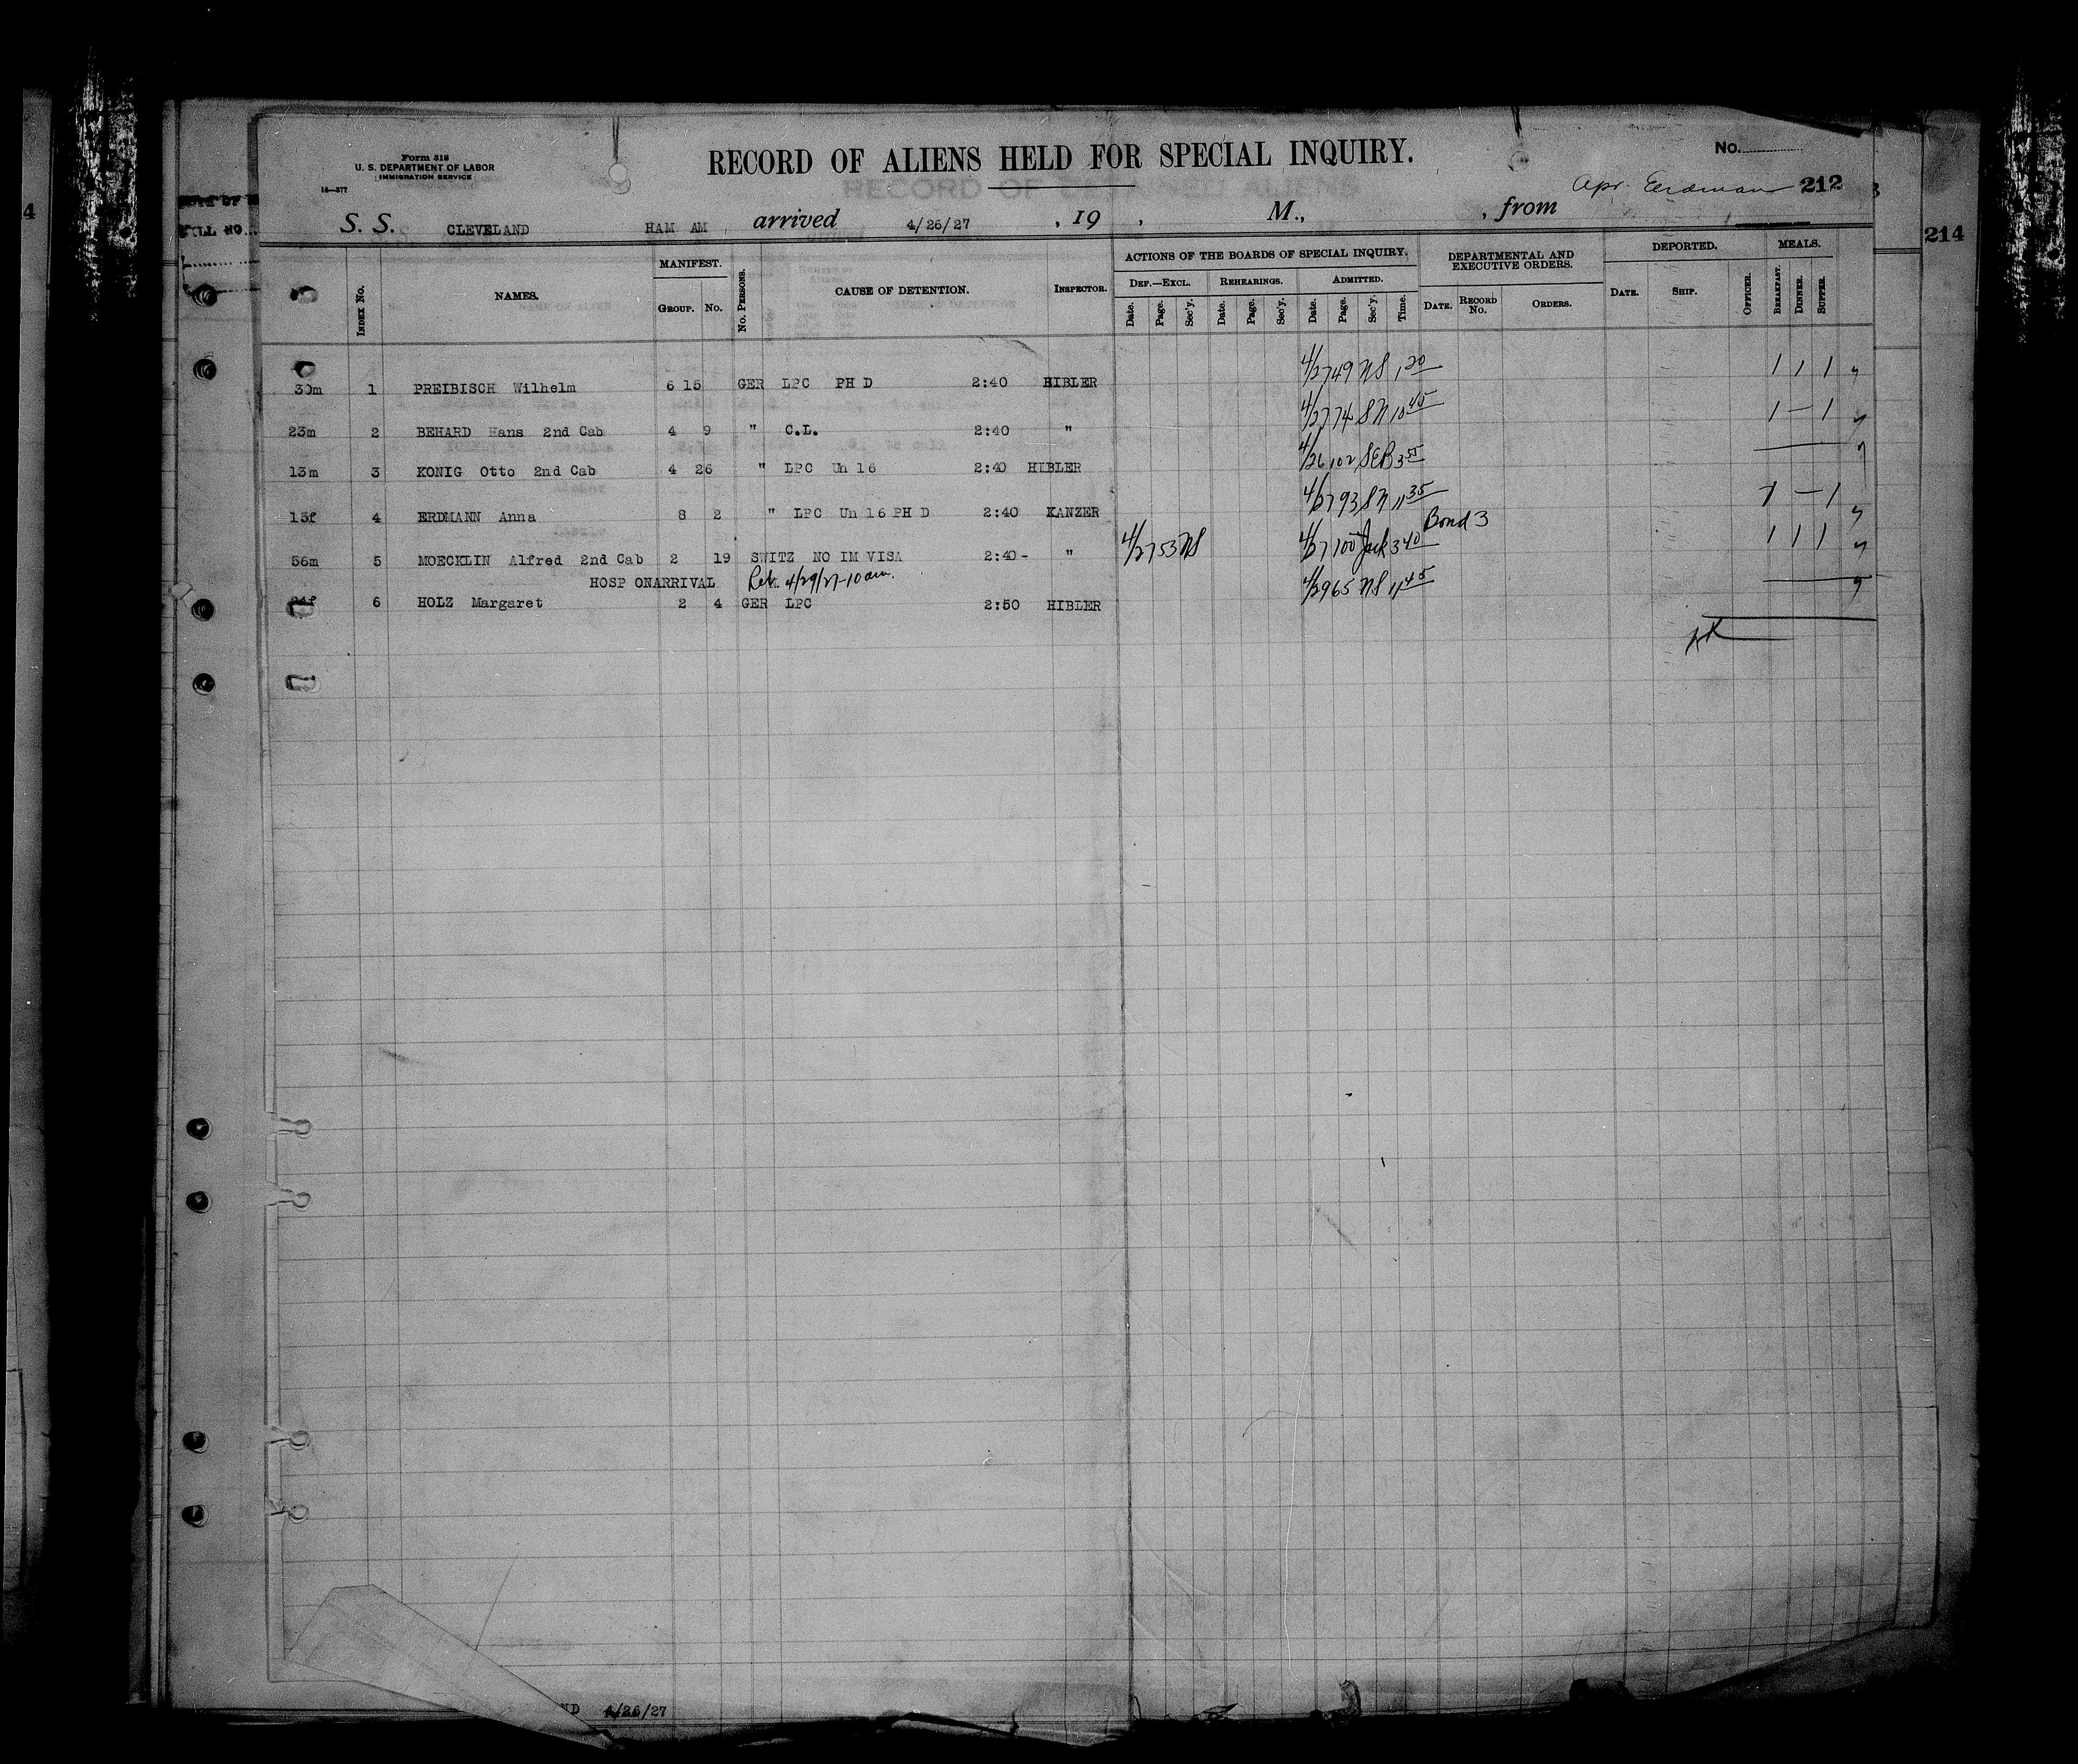 Form 518
U. S. DEPARTMENT OF LABOR
IMMIGRATION SERVICE
16—577
RECORD OF ALIENS HELD FOR SPECIAL INQUIRY.
No.
Apr. Erdmann 212
S. S. CLEVELAND HAM AM arrived 4/26/27 , 19 , M., , from
214
4
INDEX No. NAMES. MANIFEST. GROUP. No. No. PERSONS. CAUSE OF DETENTION. INSPECTOR. ACTIONS OF THE BOARDS OF SPECIAL INQUIRY. DEPARTMENTAL AND EXECUTIVE ORDERS. DEPORTED. MEALS.
DEF.—EXCL. REHEARINGS. ADMITTED.
Date. Page. Sec'y. Date. Page. Sec'y. Date. Page. Sec'y. Time. DATE. RECORD No. ORDERS. DATE. SHIP. OFFICER. BREAKFAST. DINNER. SUPPER.
30m 1 PREIBISCH Wilhelm 6 15 GER LPC PH D 2:40 HIBLER 4/27 49 NS 1 20 1 1 1
23m 2 BEHARD Hans 2nd Cab 4 9 " C.L. 2:40 " 4/27 74 SN 10 45 1 — 1
13m 3 KONIG Otto 2nd Cab 4 26 " LPC Un 16 2:40 HIBLER 4/26 102 SEB 3 55
15f 4 ERDMANN Anna 8 2 " LPC Un 16 PH D 2:40 KANZER 4/27 93 SN 11 35 1 — 1
Bond 3
56m 5 MOECKLIN Alfred 2nd Cab 2 19 SWITZ NO IM VISA 2:40 - " 4/27 53 NS 4/27 100 Jack 3 40 1 1 1
HOSP ONARRIVAL Rel. 4/29/27-10 am.
6 HOLZ Margaret 2 4 GER LPC 2:50 HIBLER 4/29 65 NS 11 45
4/26/27